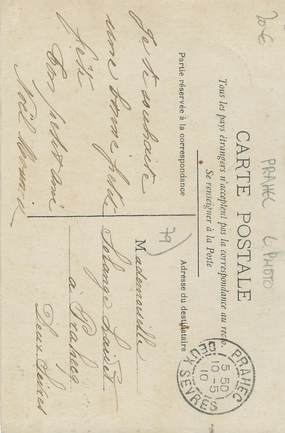 20€
PRAHEC C. PHOTO
CARTE POSTALE
Tous les pays étrangers n'acceptent pas la correspondance au recto.
Se renseigner à la Poste
Partie réservée à la correspondance
Adresse du destinataire
79
Je te souhaite
une bonne fête
fête
Ton petit ami
Noël
Mademoiselle
Solange
à Prahec
Deux Sèvres
PRAHEC
5 50
10-5
10
DEUX SÈVRES